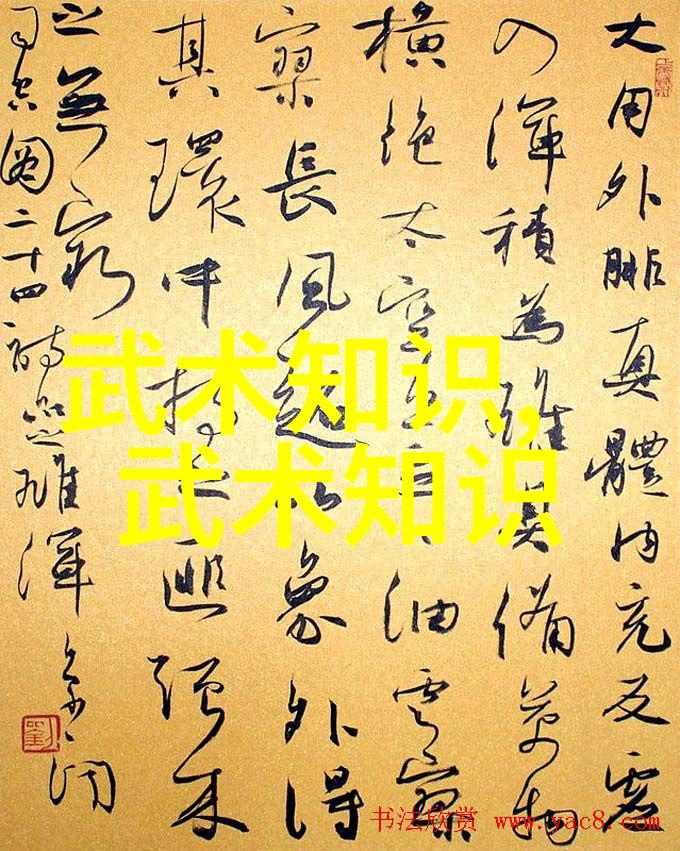 大用外腓真體内充反虛
入渾積為雄具備萬物
橫絶太空荒荒油雲寥
寥長風超以象外得
其環中持之匪強來
之無窮
司空圖二十四詩品雄渾
武术知识,
武术知识
书法欣赏 www.yac8.com